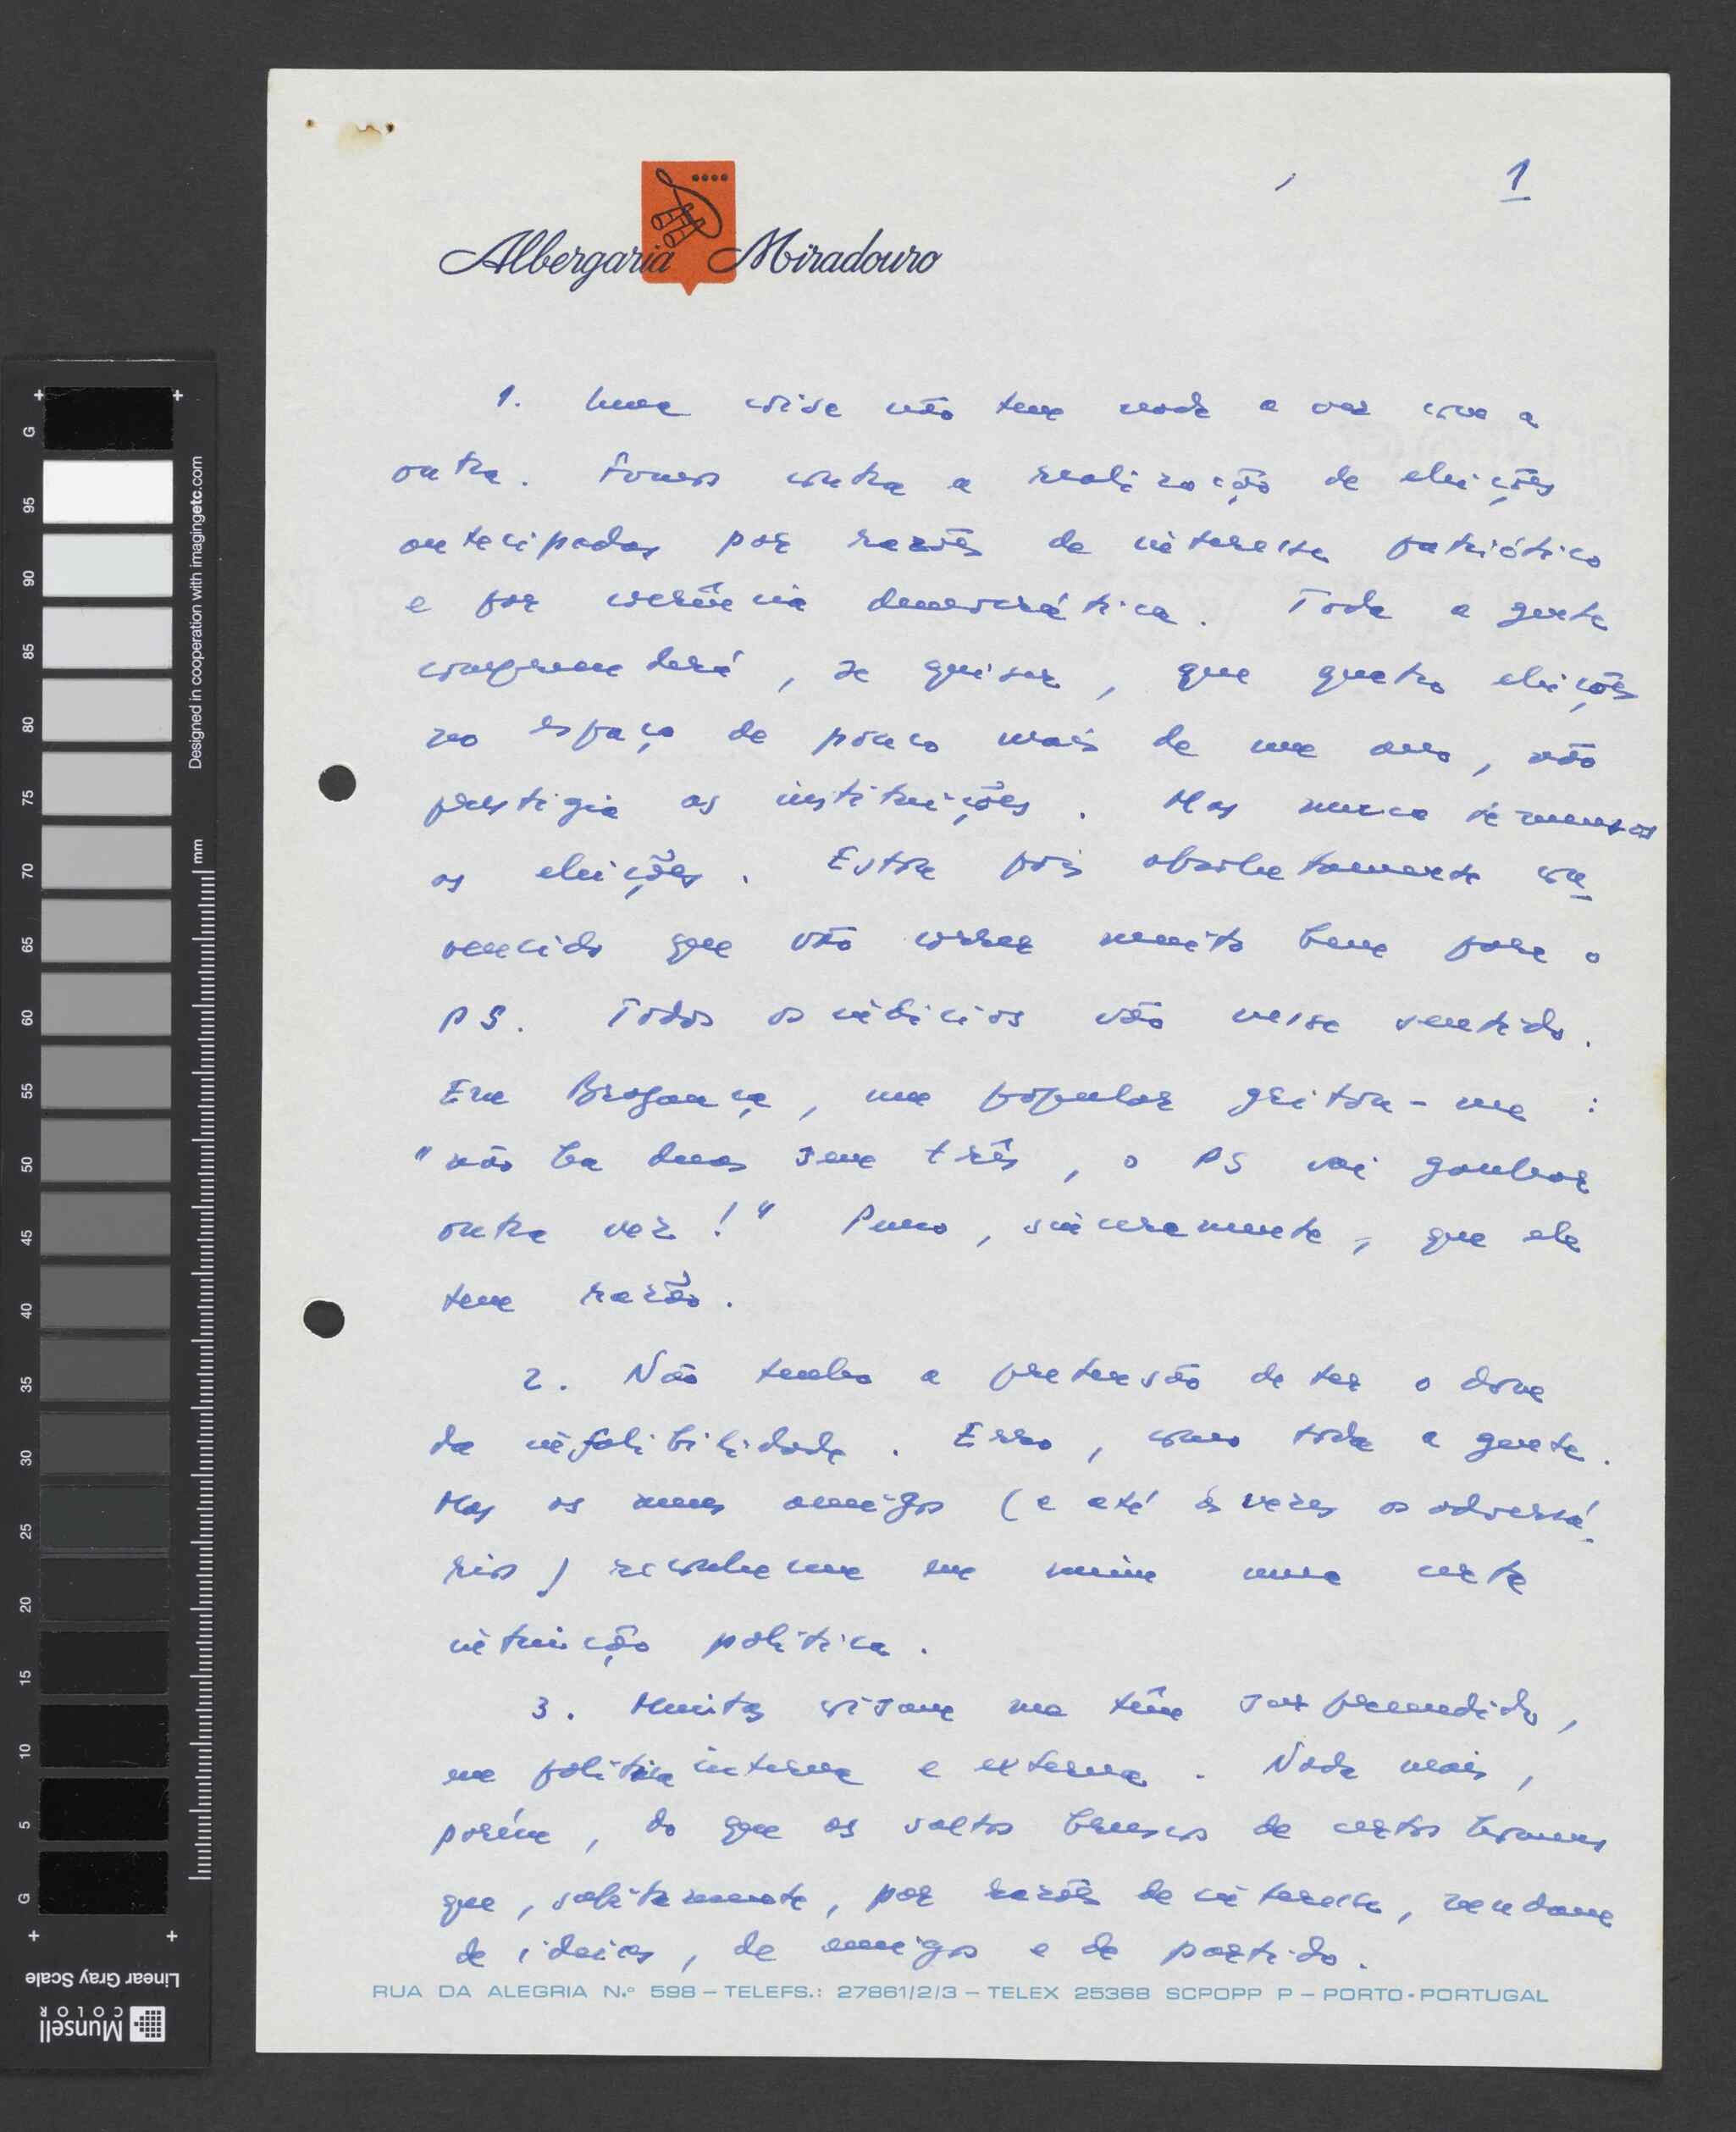 1
Albergaria Miradouro
1. Uma coisa não tem nada a ver com a
outra. Fomos contra a realização de eleições
antecipadas por razões de interesse patriótico
e por coerência democrática. Toda a gente
compreenderá, se quiser, que quatro eleições
no espaço de pouco mais de um ano, não
prestigia as instituições. Mas nunca tememos
as eleições. Estou pois absolutamente con
vencido que vão correr muito bem para o
PS. Todos os indícios vão nesse sentido.
Em Bragança, um popular gritou-me :
"não há duas sem três, o PS vai ganhar
outra vez!" Penso, sinceramente, que ele
tem razão.
2. Não tenho a pretensão de ter o dom
da infalibilidade. Erro, como toda a gente.
Mas os meus amigos (e até às vezes os adversá-
rios) reconhecem em mim uma certa
intuição política.
3. Muitas coisas me têm surpreendido,
na política interna e externa. Nada mais,
porém, do que os saltos bruscos de certos homens
que, subitamente, por razões de interesse, mudam
de ideias, de amigos e de partido.
RUA DA ALEGRIA N.º 598 – TELEFS.: 27861/2/3 – TELEX 25368 SCPOPP P – PORTO - PORTUGAL
Designed in cooperation with imagingetc.com
mm
G 95 90 85 80 75 70 65 60 55 50 45 40 35 30 25 20 15 10 5 G
Linear Gray Scale
Munsell
COLOR